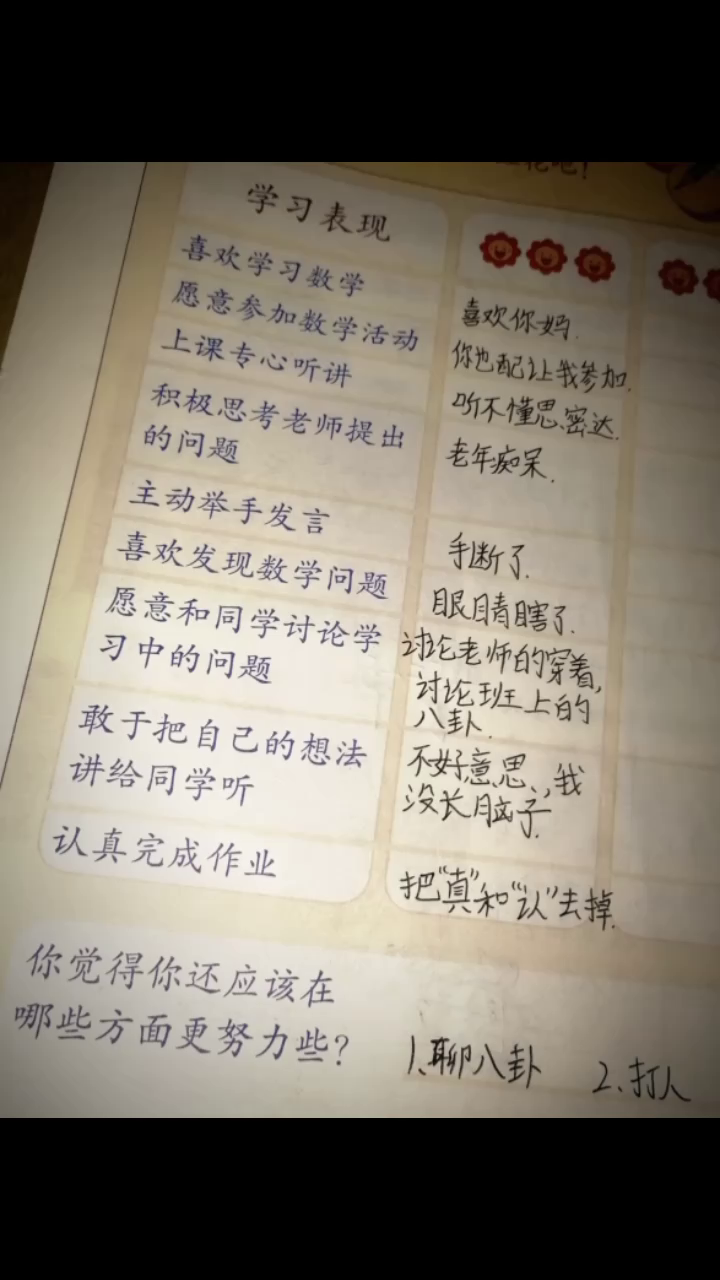 学习表现
喜欢学习数学
喜欢你妈.
愿意参加数学活动
你也配让我参加.
上课专心听讲
听不懂思密达.
积极思考老师提出
的问题
老年痴呆.
主动举手发言
手断了.
喜欢发现数学问题
眼睛瞎了.
愿意和同学讨论学
习中的问题
讨论老师的穿着,
讨论班上的
八卦.
敢于把自己的想法
讲给同学听
不好意思,我
没长脑子.
认真完成作业
把“真”和“认”去掉.
你觉得你还应该在
哪些方面更努力些?
1、聊八卦 2、打人